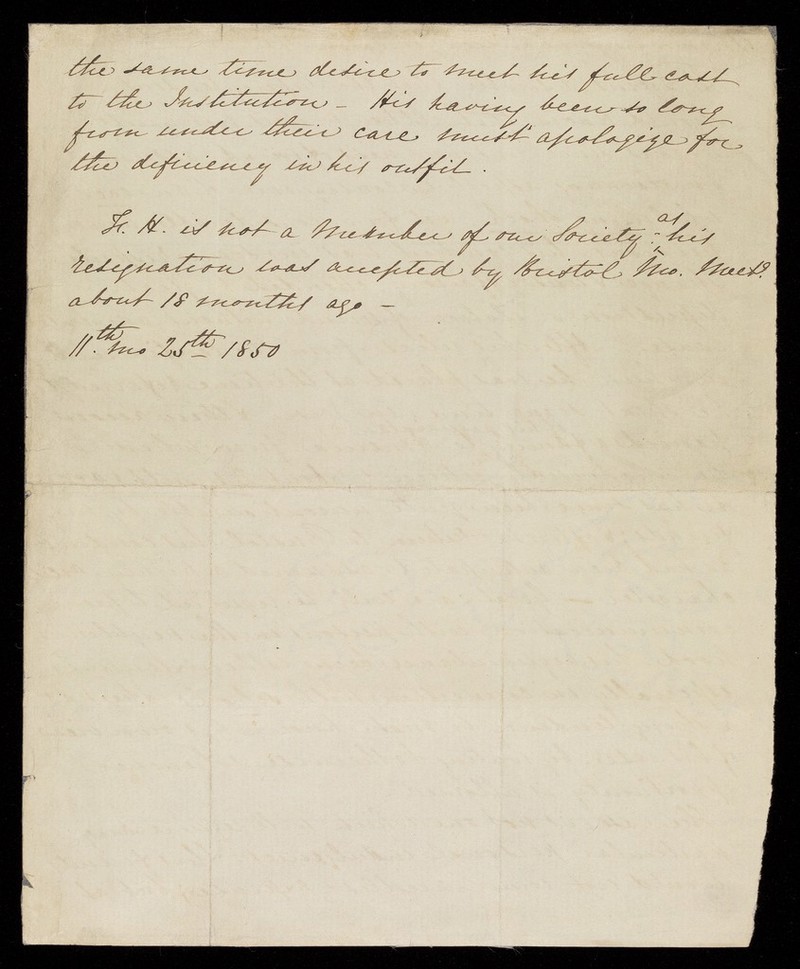 the same time desire to meet his full cost
to the Institution - His having been so long
from under their care must apologize for
the deficiency in his outfit.
H. is not a Member of our Society - as his
resignation was accepted by Bristol Mo. Meetg.
about 18 months ago -
11.th mo 25th 1850